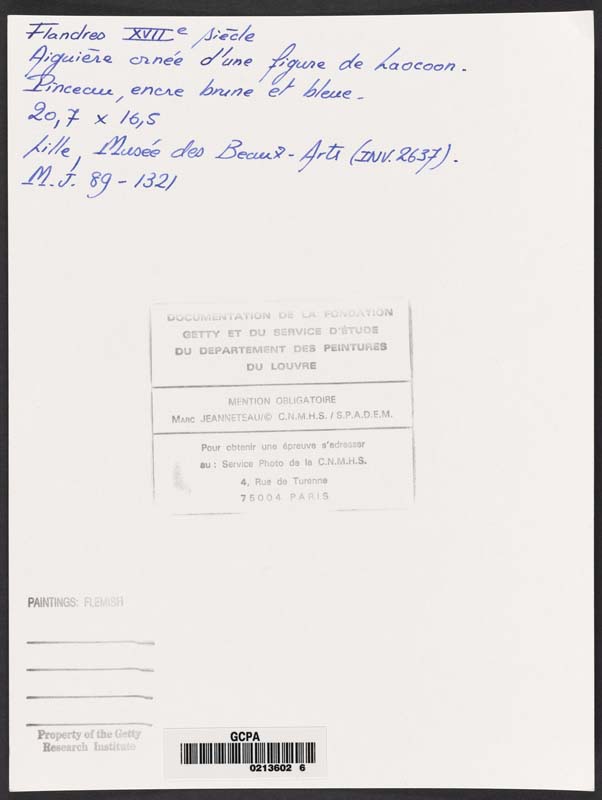 Flandres XVIIe siècle
Aiguière ornée d'une figure de Laocoon.
Pinceau, encre brune et bleue.
20,7 x 16,5
Lille, Musée des Beaux-Arts (INV. 2637).
M. J. 89 - 1321
DOCUMENTATION DE LA FONDATION
GETTY ET DU SERVICE D'ÉTUDE
DU DEPARTEMENT DES PEINTURES
DU LOUVRE
MENTION OBLIGATOIRE
MARC JEANNETEAU/© C.N.M.H.S. / S.P.A.D.E.M.
Pour obtenir une épreuve s'adresser
au : Service Photo de la C.N.M.H.S.
4, Rue de Turenne
75004 PARIS
PAINTINGS: FLEMISH
Property of the Getty
Research Institute
GCPA
0213602 6